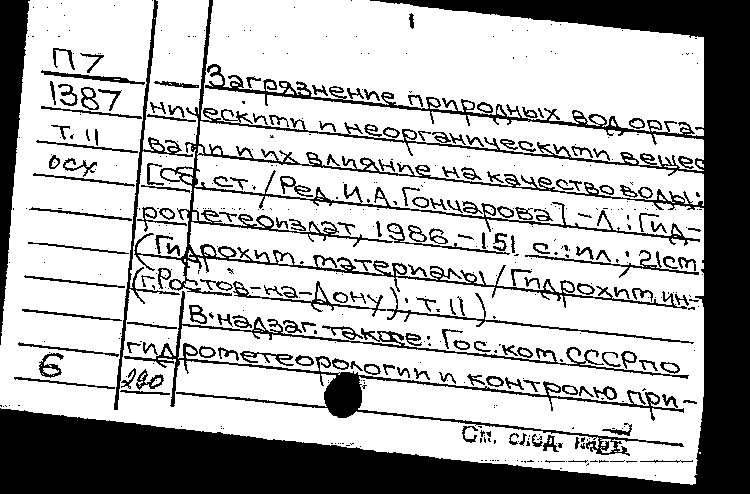 1
П7
1387
т. 11
осх
Загрязнение природных вод орга-
ническими и неорганическими вещес
вами и их влияние на качество воды:
[Сб. ст. / Ред. И.А. Гончарова]. - Л.: Гид-
рометеоиздат, 1986. - 151 с.: ил.; 21 см.
(Гидрохим. материалы / Гидрохим. ин-т
(г. Ростов-на-Дону); т. 11).
В надзаг. также: Гос. ком. СССР по
гидрометеорологии и контролю при-
6
290
См. след. карт.